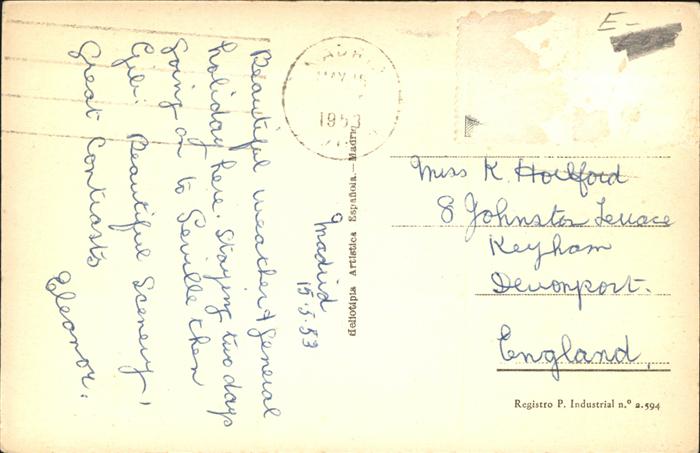 Madrid
15.5.53
Beautiful weather & general
holiday here. Staying two days
going on to Seville then
Gib: Beautiful Scenery,
Great Contrasts
Eleonor.
MADRID
1953
Heliotipia Artística Española.—Madrid
E-
Miss K. Holford
8 Johnston Terrace
Keyham
Devonport.
England.
Registro P. Industrial n.º 2.594